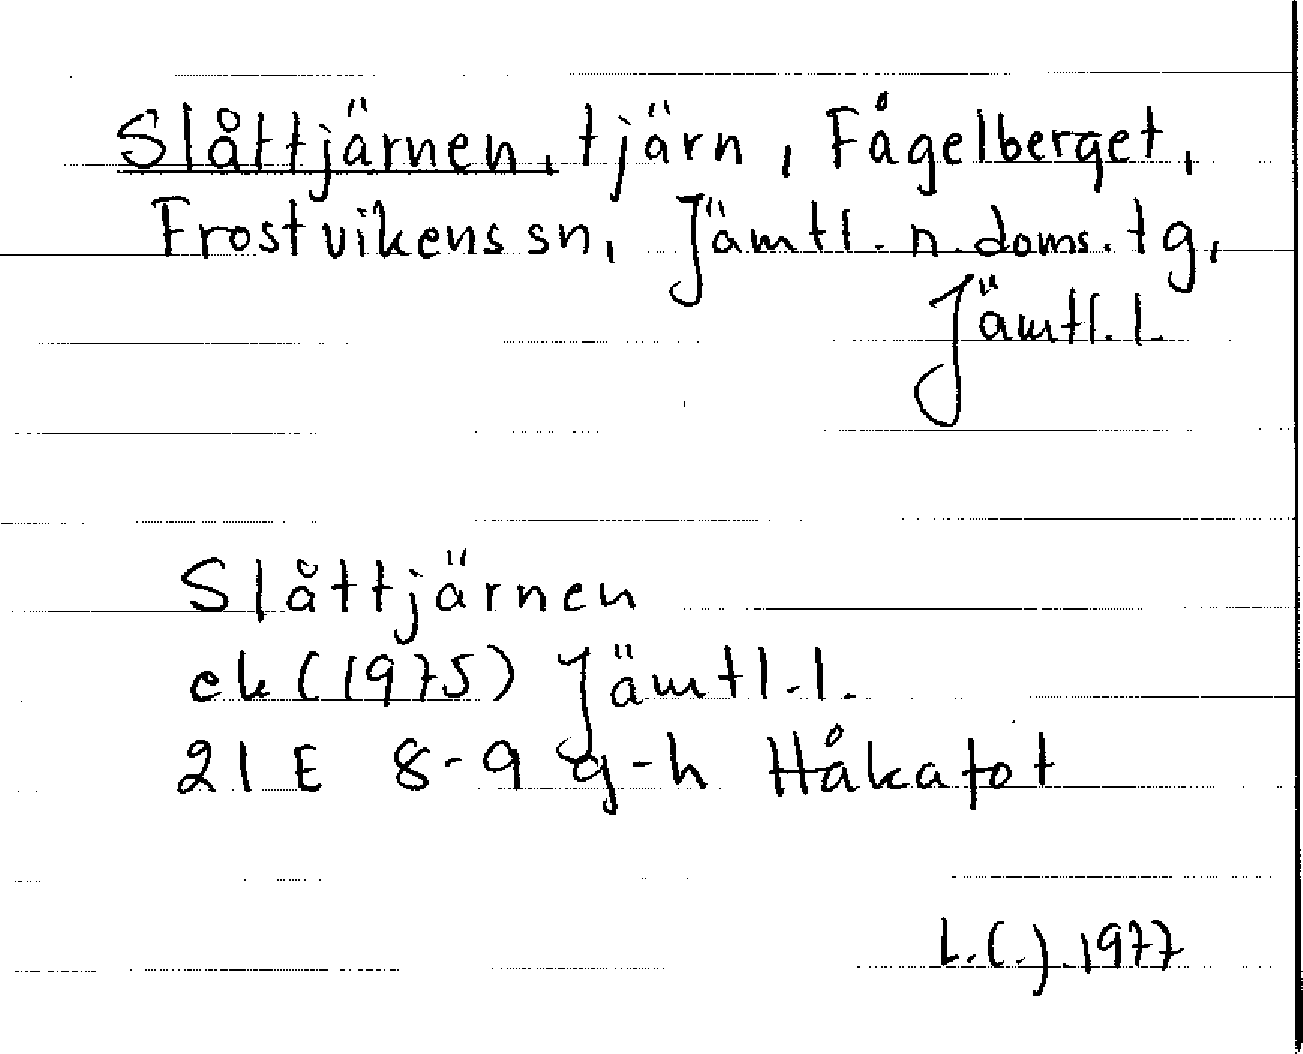 Slåttjärnen, tjärn, Fågelberget,
Frostvikens sn, Jämtl. n. doms. tg,
Jämtl. l.
Slåttjärnen
ek (1975) Jämtl. l.
21 E 8-9 g-h Håkafot
L.C.J. 1977